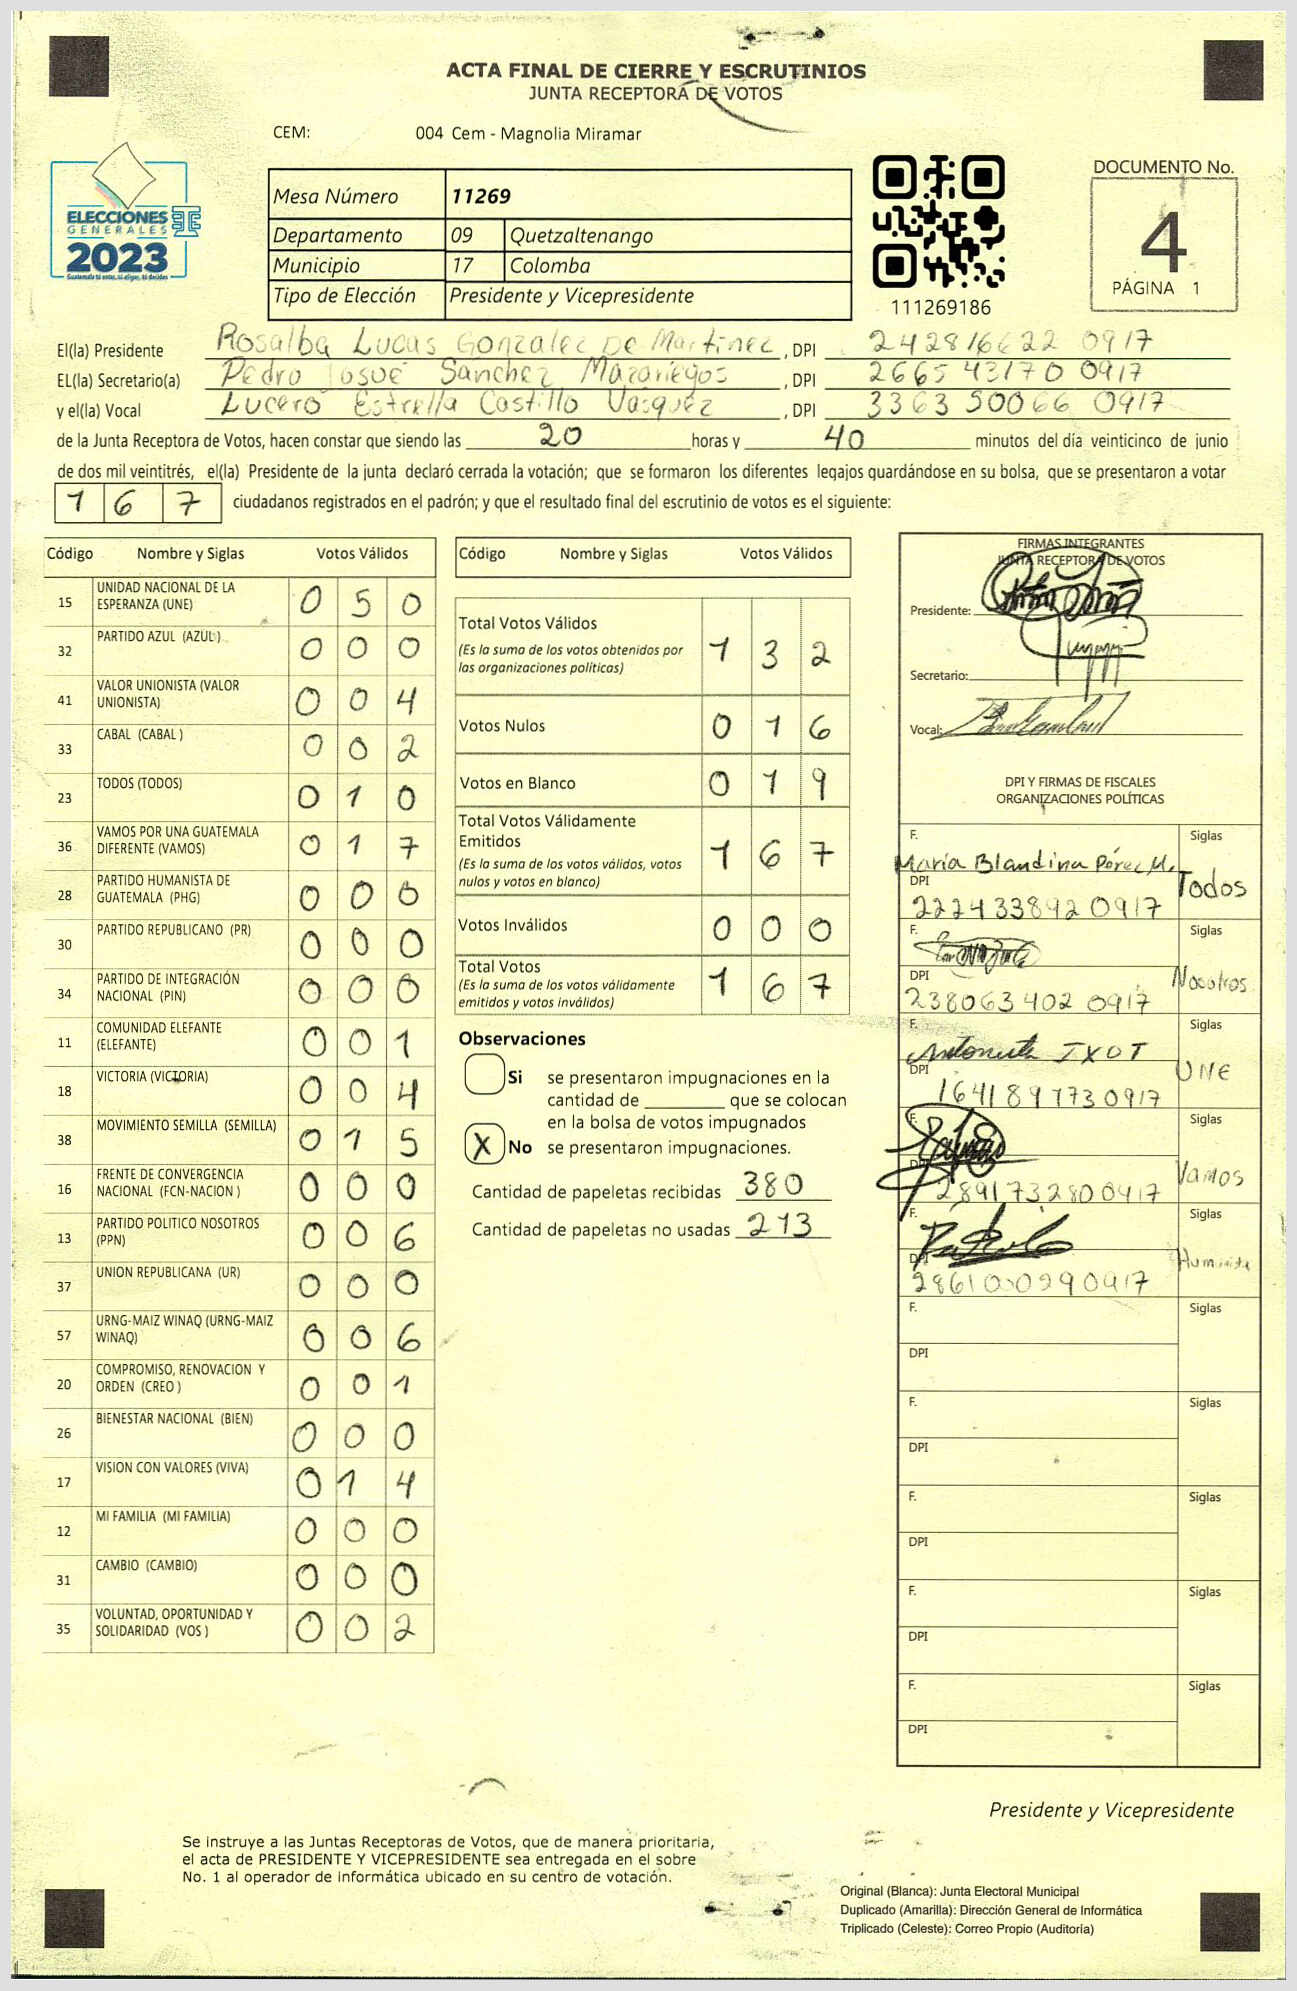 ACTA FINAL DE CIERRE Y ESCRUTINIOS
JUNTA RECEPTORA DE VOTOS
CEM: 004 Cem - Magnolia Miramar
ELECCIONES
GENERALES
2023
Mesa Número 11269
Departamento 09 Quetzaltenango
Municipio 17 Colomba
Tipo de Elección Presidente y Vicepresidente
111269186
DOCUMENTO No.
4
PÁGINA 1
El(la) Presidente Rosalba Lucas Gonzalez De Martinez, DPI 242816622 0917
EL(la) Secretario(a) Pedro Josué Sánchez Mazariegos, DPI 2665 43170 0917
y el(la) Vocal Lucero Estrella Castillo Vasquez, DPI 3363 50066 0917
de la Junta Receptora de Votos, hacen constar que siendo las 20 horas y 40 minutos del día veinticinco de junio
de dos mil veintitrés, el(la) Presidente de la junta declaró cerrada la votación; que se formaron los diferentes legajos guardándose en su bolsa, que se presentaron a votar
1 6 7 ciudadanos registrados en el padrón; y que el resultado final del escrutinio de votos es el siguiente:
Código Nombre y Siglas Votos Válidos
15 UNIDAD NACIONAL DE LA ESPERANZA (UNE) 0 5 0
32 PARTIDO AZUL (AZUL) 0 0 0
41 VALOR UNIONISTA (VALOR UNIONISTA) 0 0 4
33 CABAL (CABAL ) 0 0 2
23 TODOS (TODOS) 0 1 0
36 VAMOS POR UNA GUATEMALA DIFERENTE (VAMOS) 0 1 7
28 PARTIDO HUMANISTA DE GUATEMALA (PHG) 0 0 0
30 PARTIDO REPUBLICANO (PR) 0 0 0
34 PARTIDO DE INTEGRACIÓN NACIONAL (PIN) 0 0 0
11 COMUNIDAD ELEFANTE (ELEFANTE) 0 0 1
18 VICTORIA (VICTORIA) 0 0 4
38 MOVIMIENTO SEMILLA (SEMILLA) 0 1 5
16 FRENTE DE CONVERGENCIA NACIONAL (FCN-NACION ) 0 0 0
13 PARTIDO POLITICO NOSOTROS (PPN) 0 0 6
37 UNION REPUBLICANA (UR) 0 0 0
57 URNG-MAIZ WINAQ (URNG-MAIZ WINAQ) 0 0 6
20 COMPROMISO, RENOVACION Y ORDEN (CREO ) 0 0 1
26 BIENESTAR NACIONAL (BIEN) 0 0 0
17 VISION CON VALORES (VIVA) 0 1 4
12 MI FAMILIA (MI FAMILIA) 0 0 0
31 CAMBIO (CAMBIO) 0 0 0
35 VOLUNTAD, OPORTUNIDAD Y SOLIDARIDAD (VOS ) 0 0 2
Código Nombre y Siglas Votos Válidos
Total Votos Válidos 1 3 2
(Es la suma de los votos obtenidos por
las organizaciones políticas)
Votos Nulos 0 1 6
Votos en Blanco 0 1 9
Total Votos Válidamente
Emitidos 1 6 7
(Es la suma de los votos válidos, votos
nulos y votos en blanco)
Votos Inválidos 0 0 0
Total Votos 1 6 7
(Es la suma de los votos válidamente
emitidos y votos inválidos)
Observaciones
Si se presentaron impugnaciones en la
cantidad de que se colocan
en la bolsa de votos impugnados
X No se presentaron impugnaciones.
Cantidad de papeletas recibidas 380
Cantidad de papeletas no usadas 213
FIRMAS INTEGRANTES
JUNTA RECEPTORA DE VOTOS
Presidente:
Secretario:
Vocal:
DPI Y FIRMAS DE FISCALES
ORGANIZACIONES POLÍTICAS
F. María Blandina Pérez M. Siglas
DPI 222433892 0917 Todos
F. Siglas
DPI 238063402 0917 Nosotros
F. Antonieta IXOT Siglas
DPI 1641897730917 UNE
F. Siglas
DPI 2891732800917 Vamos
F. Siglas
DPI 2861000290917
F. Siglas
DPI
F. Siglas
DPI
F. Siglas
DPI
F. Siglas
DPI
F. Siglas
DPI
Presidente y Vicepresidente
Se instruye a las Juntas Receptoras de Votos, que de manera prioritaria,
el acta de PRESIDENTE Y VICEPRESIDENTE sea entregada en el sobre
No. 1 al operador de informática ubicado en su centro de votación.
Original (Blanca): Junta Electoral Municipal
Duplicado (Amarilla): Dirección General de Informática
Triplicado (Celeste): Correo Propio (Auditoría)